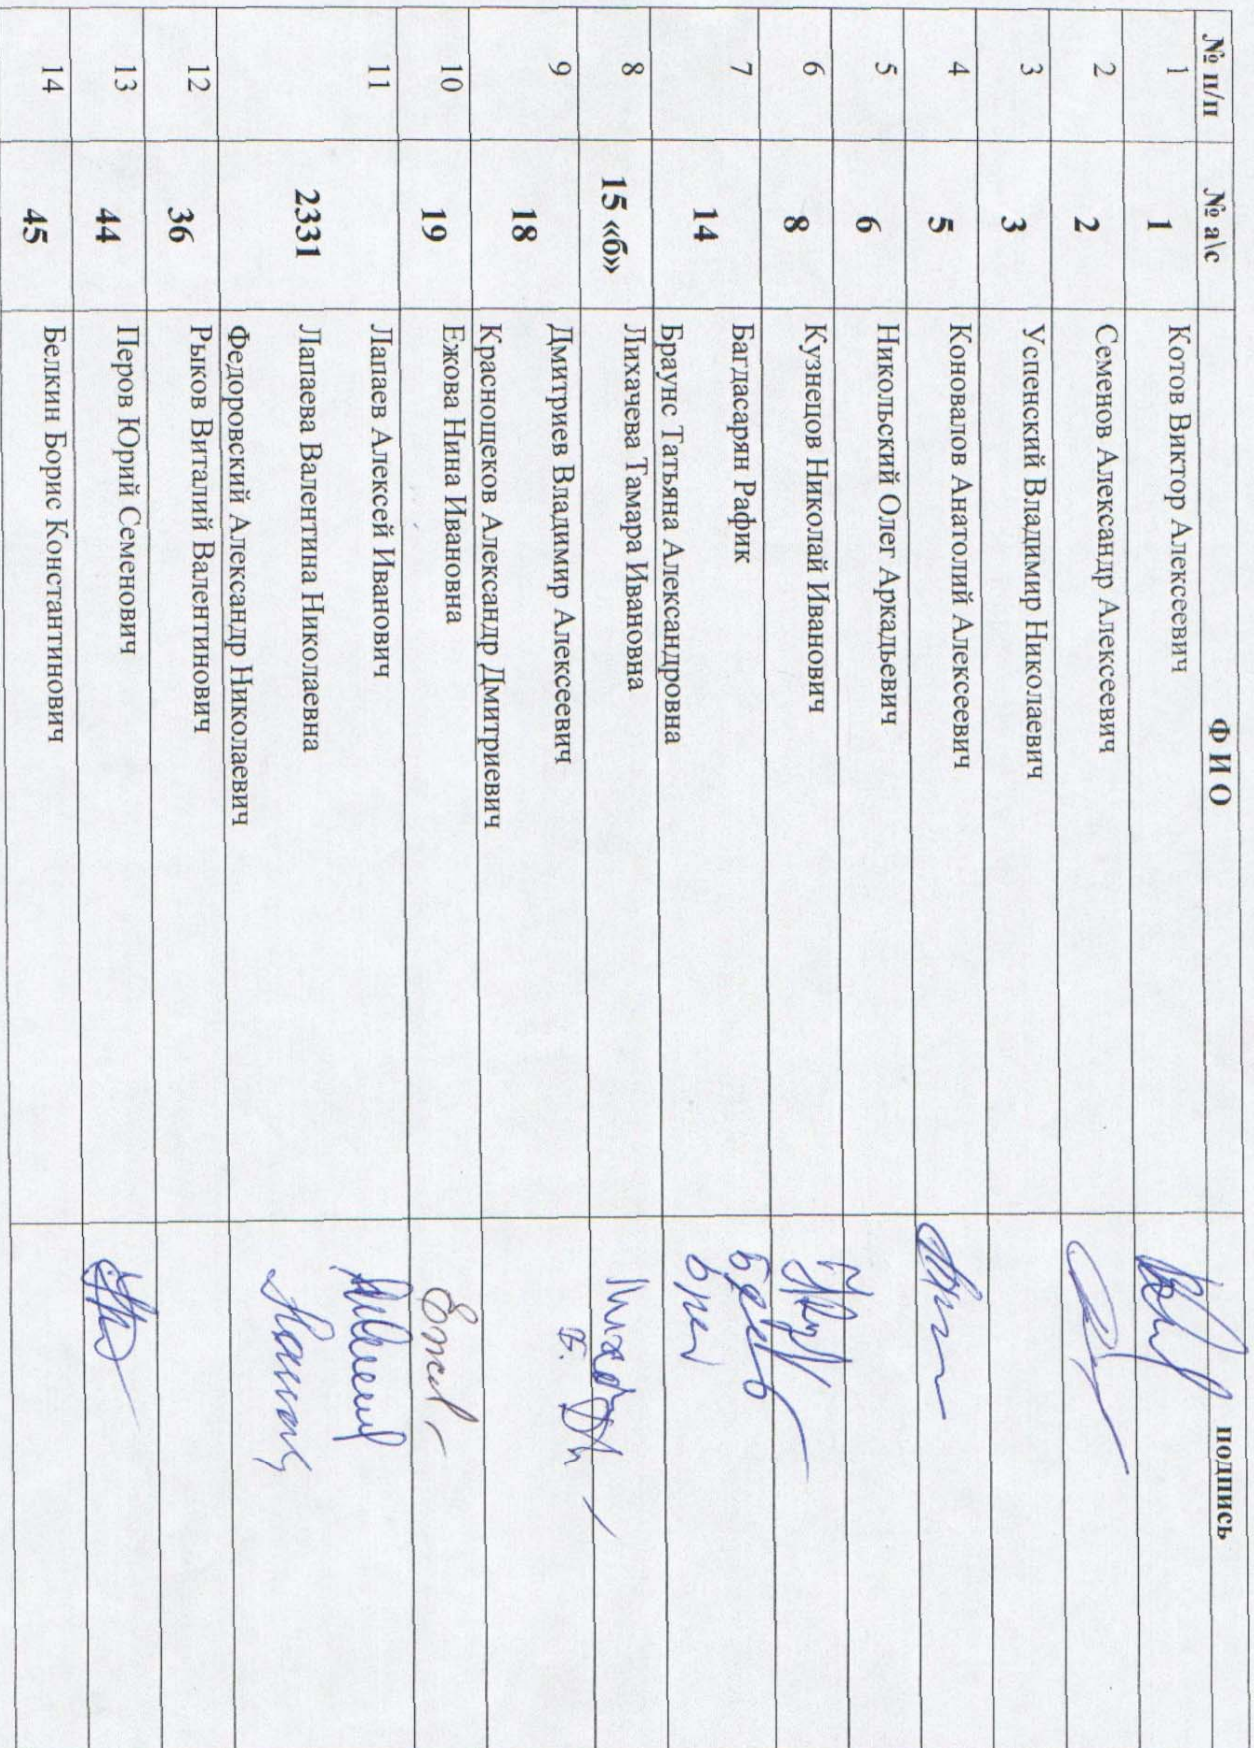 № п/п № а\с Ф И О подпись
1 1 Котов Виктор Алексеевич
2 2 Семенов Александр Алексеевич
3 3 Успенский Владимир Николаевич
4 5 Коновалов Анатолий Алексеевич
5 6 Никольский Олег Аркадьевич
6 8 Кузнецов Николай Иванович
7 14 Багдасарян Рафик
Браунс Татьяна Александровна
8 15 «б» Лихачева Тамара Ивановна
9 18 Дмитриев Владимир Алексеевич
Краснощеков Александр Дмитриевич
10 19 Ежова Нина Ивановна
11 2331 Лапаев Алексей Иванович
Лапаева Валентина Николаевна
Федоровский Александр Николаевич
12 36 Рыков Виталий Валентинович
13 44 Перов Юрий Семенович
14 45 Белкин Борис Константинович